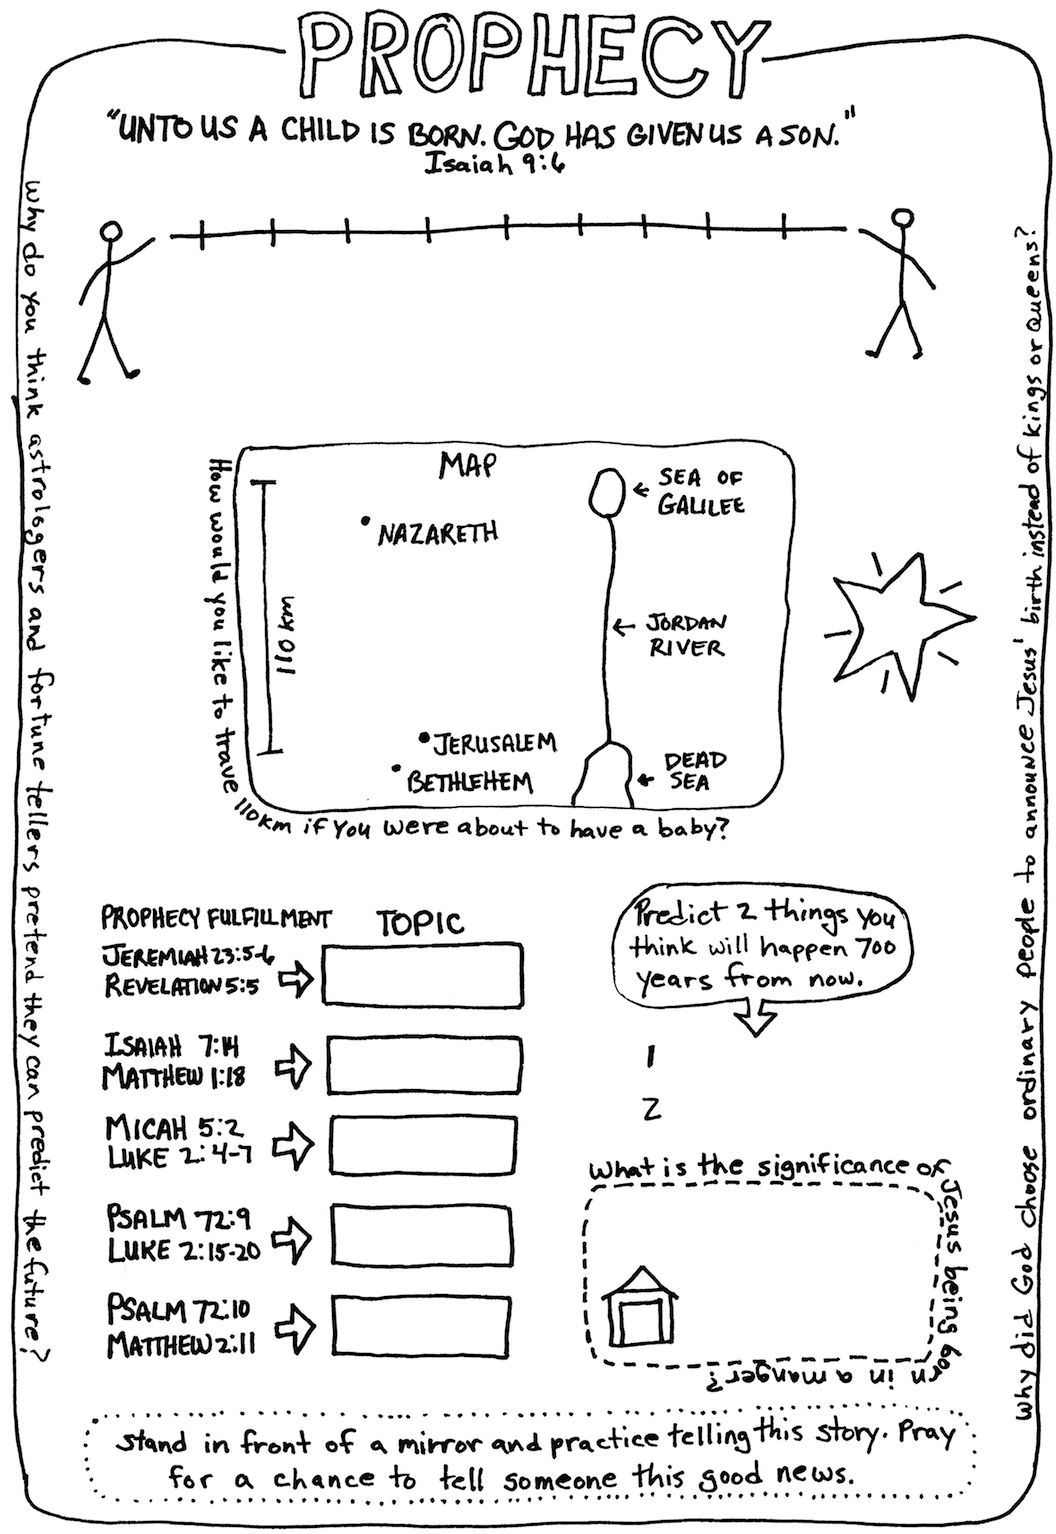 PROPHECY
"UNTO US A CHILD IS BORN. GOD HAS GIVEN US A SON."
Isaiah 9:6
Why do you think astrologers and fortune tellers pretend they can predict the future?
Why did God choose ordinary people to announce Jesus' birth instead of kings or queens?
MAP
SEA OF
GALILEE
NAZARETH
110 KM
JORDAN
RIVER
JERUSALEM
BETHLEHEM
DEAD
SEA
How would you like to trave 110km if you were about to have a baby?
PROPHECY FULFILLMENT
TOPIC
JEREMIAH 23:5-6
REVELATION 5:5
ISAIAH 7:14
MATTHEW 1:18
MICAH 5:2
LUKE 2:4-7
PSALM 72:9
LUKE 2:15-20
PSALM 72:10
MATTHEW 2:11
Predict 2 things you
think will happen 700
years from now.
1
2
What is the significance of Jesus being born in a manger?
Stand in front of a mirror and practice telling this story. Pray
for a chance to tell someone this good news.